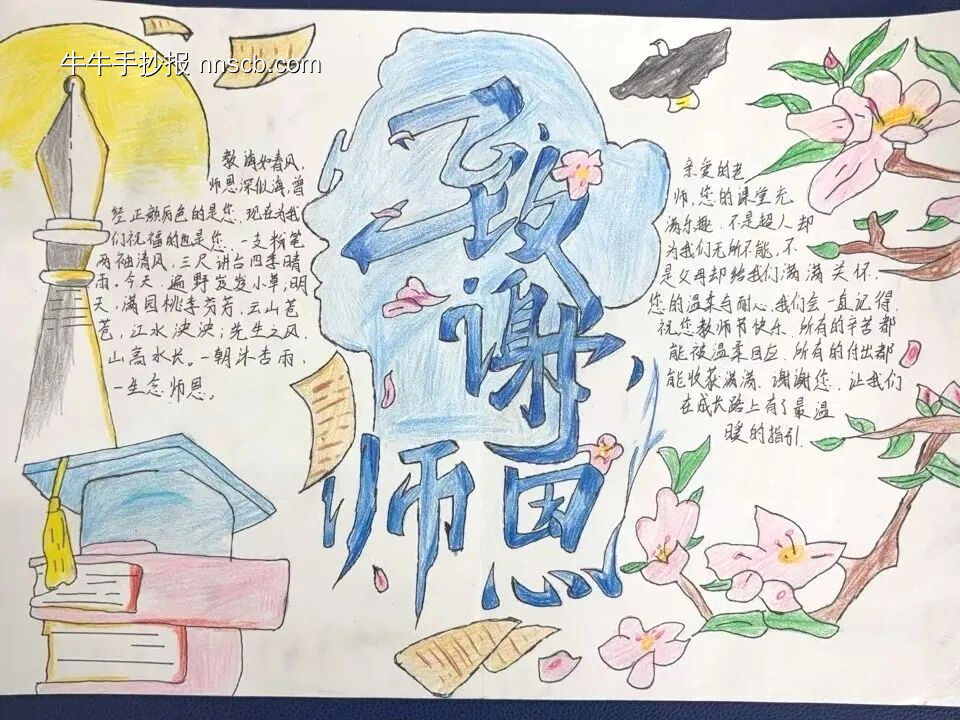 牛牛手抄报 nnscb.com
教诲如春风，
师恩深似海，曾
经正颜厉色的是您，现在为我
们祝福的也是您，一支粉笔
两袖清风，三尺讲台四季晴
雨。今天，遍野茇茇小草，明
天，满园桃李芬芳，云山苍
苍，江水泱泱；先生之风，
山高水长。一朝沐杏雨，
一生念师恩。
致谢
师恩
亲爱的老
师，您的课堂充
满乐趣，不是超人却
为我们无所不能，不
是父母却给我们满满关怀.
您的温柔与耐心，我们会一直记得.
祝您教师节快乐，所有的辛苦都
能被温柔回应，所有的付出都
能收获满满、谢谢您，让我们
在成长路上有了最温
暖的指引.